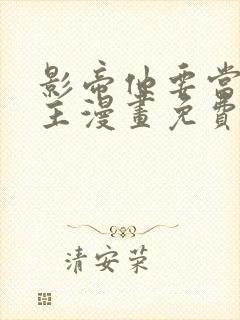 影帝他要當
主漫畫免費
清安荣